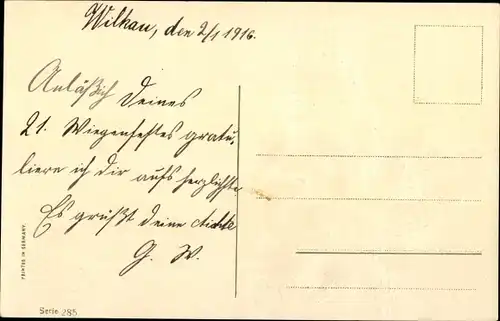 Wilkau, den 2/1 1916.
Anläßlich Deines
21. Wiegenfestes gratu-
liere ich Dir aufs herzlichste.
Es grüßt Deine
G. W.
PRINTED IN GERMANY
Serie 285